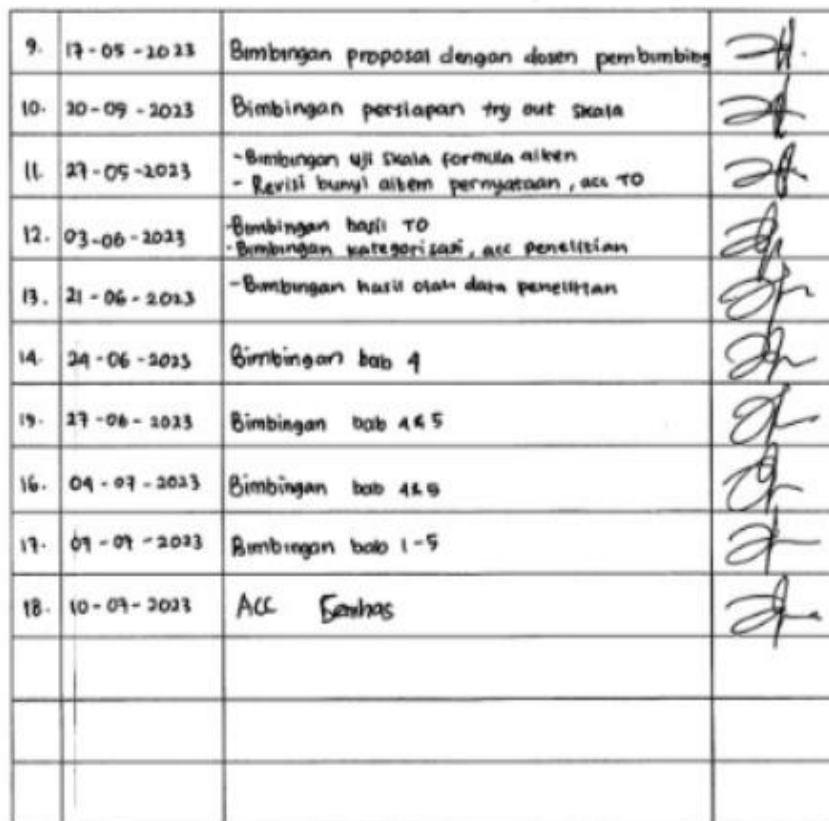 9. 17-05-2023 Bimbingan proposal dengan dosen pembimbing
10. 20-09-2023 Bimbingan persiapan try out skala
11. 27-05-2023 - Bimbingan uji skala formula aiken
- Revisi bunyi aitem pernyataan, acc TO
12. 03-06-2023 - Bimbingan hasil TO
- Bimbingan kategorisasi, acc penelitian
13. 21-06-2023 - Bimbingan hasil olah data penelitian
14. 24-06-2023 Bimbingan bab 4
15. 27-06-2023 Bimbingan bab 4&5
16. 04-07-2023 Bimbingan bab 4&5
17. 07-07-2023 Bimbingan bab 1-5
18. 10-07-2023 ACC Semhas